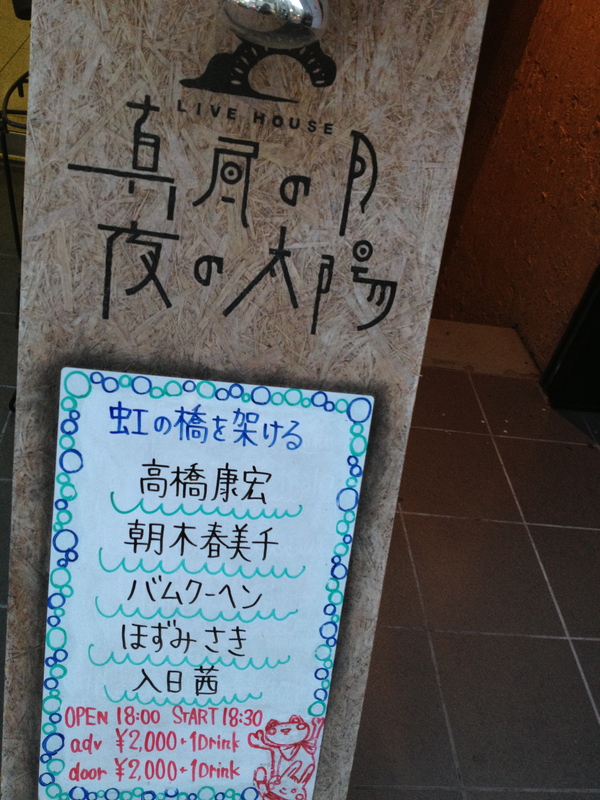 LIVE HOUSE
真昼の月
夜の太陽
虹の橋を架ける
高橋康宏
朝木春美千
バムクーヘン
ほずみさき
入日茜
OPEN 18:00 START 18:30
adv ¥2,000+1Drink
door ¥2,000+1Drink